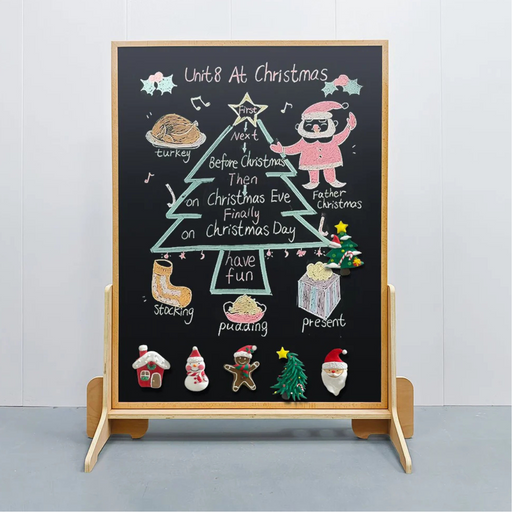 Unit 8 At Christmas
First
Next
Before Christmas
Then
on Christmas Eve
Finally
on Christmas Day
have
fun
turkey
Father
Christmas
Stocking
pudding
present